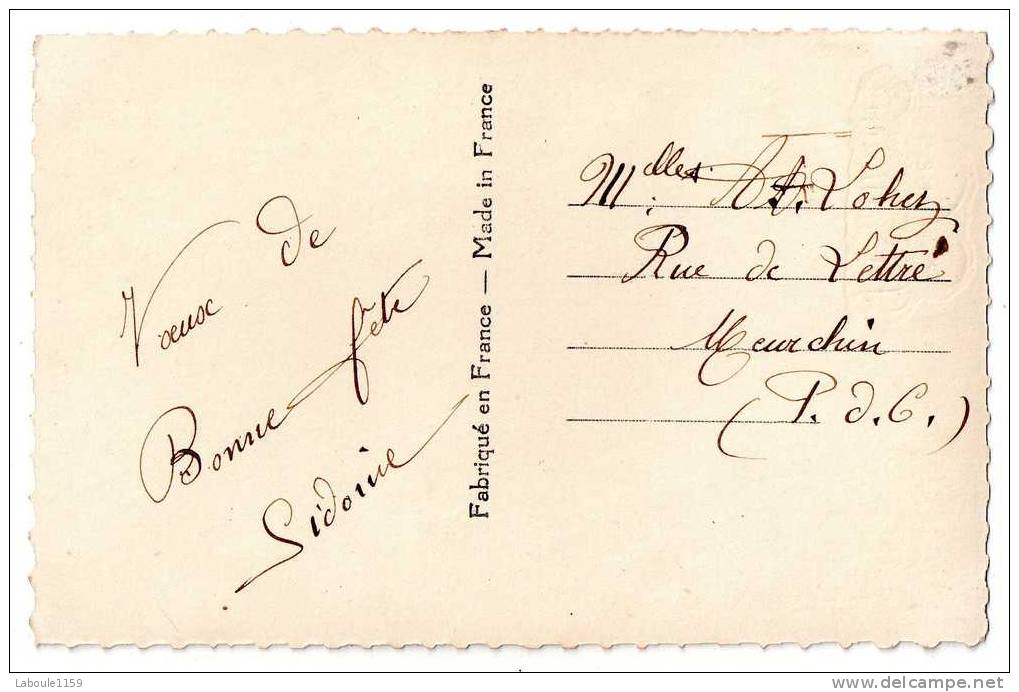 Voeux de
Bonne fête
Sidoine
Fabriqué en France — Made in France
Mlles Lohez
Rue de Lettré
Meurchin
(P. d. C.)
Laboule1159
www.delcampe.net